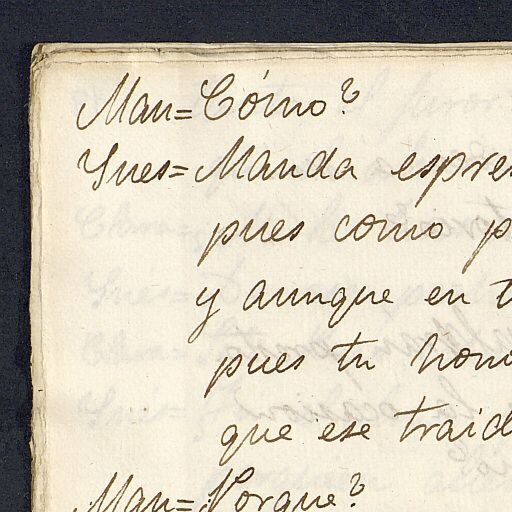 Man= Cómo?
Ynes= Manda espre
pues como p
y aunque en t
pues tu hono
que ese traid
Man= Porque?